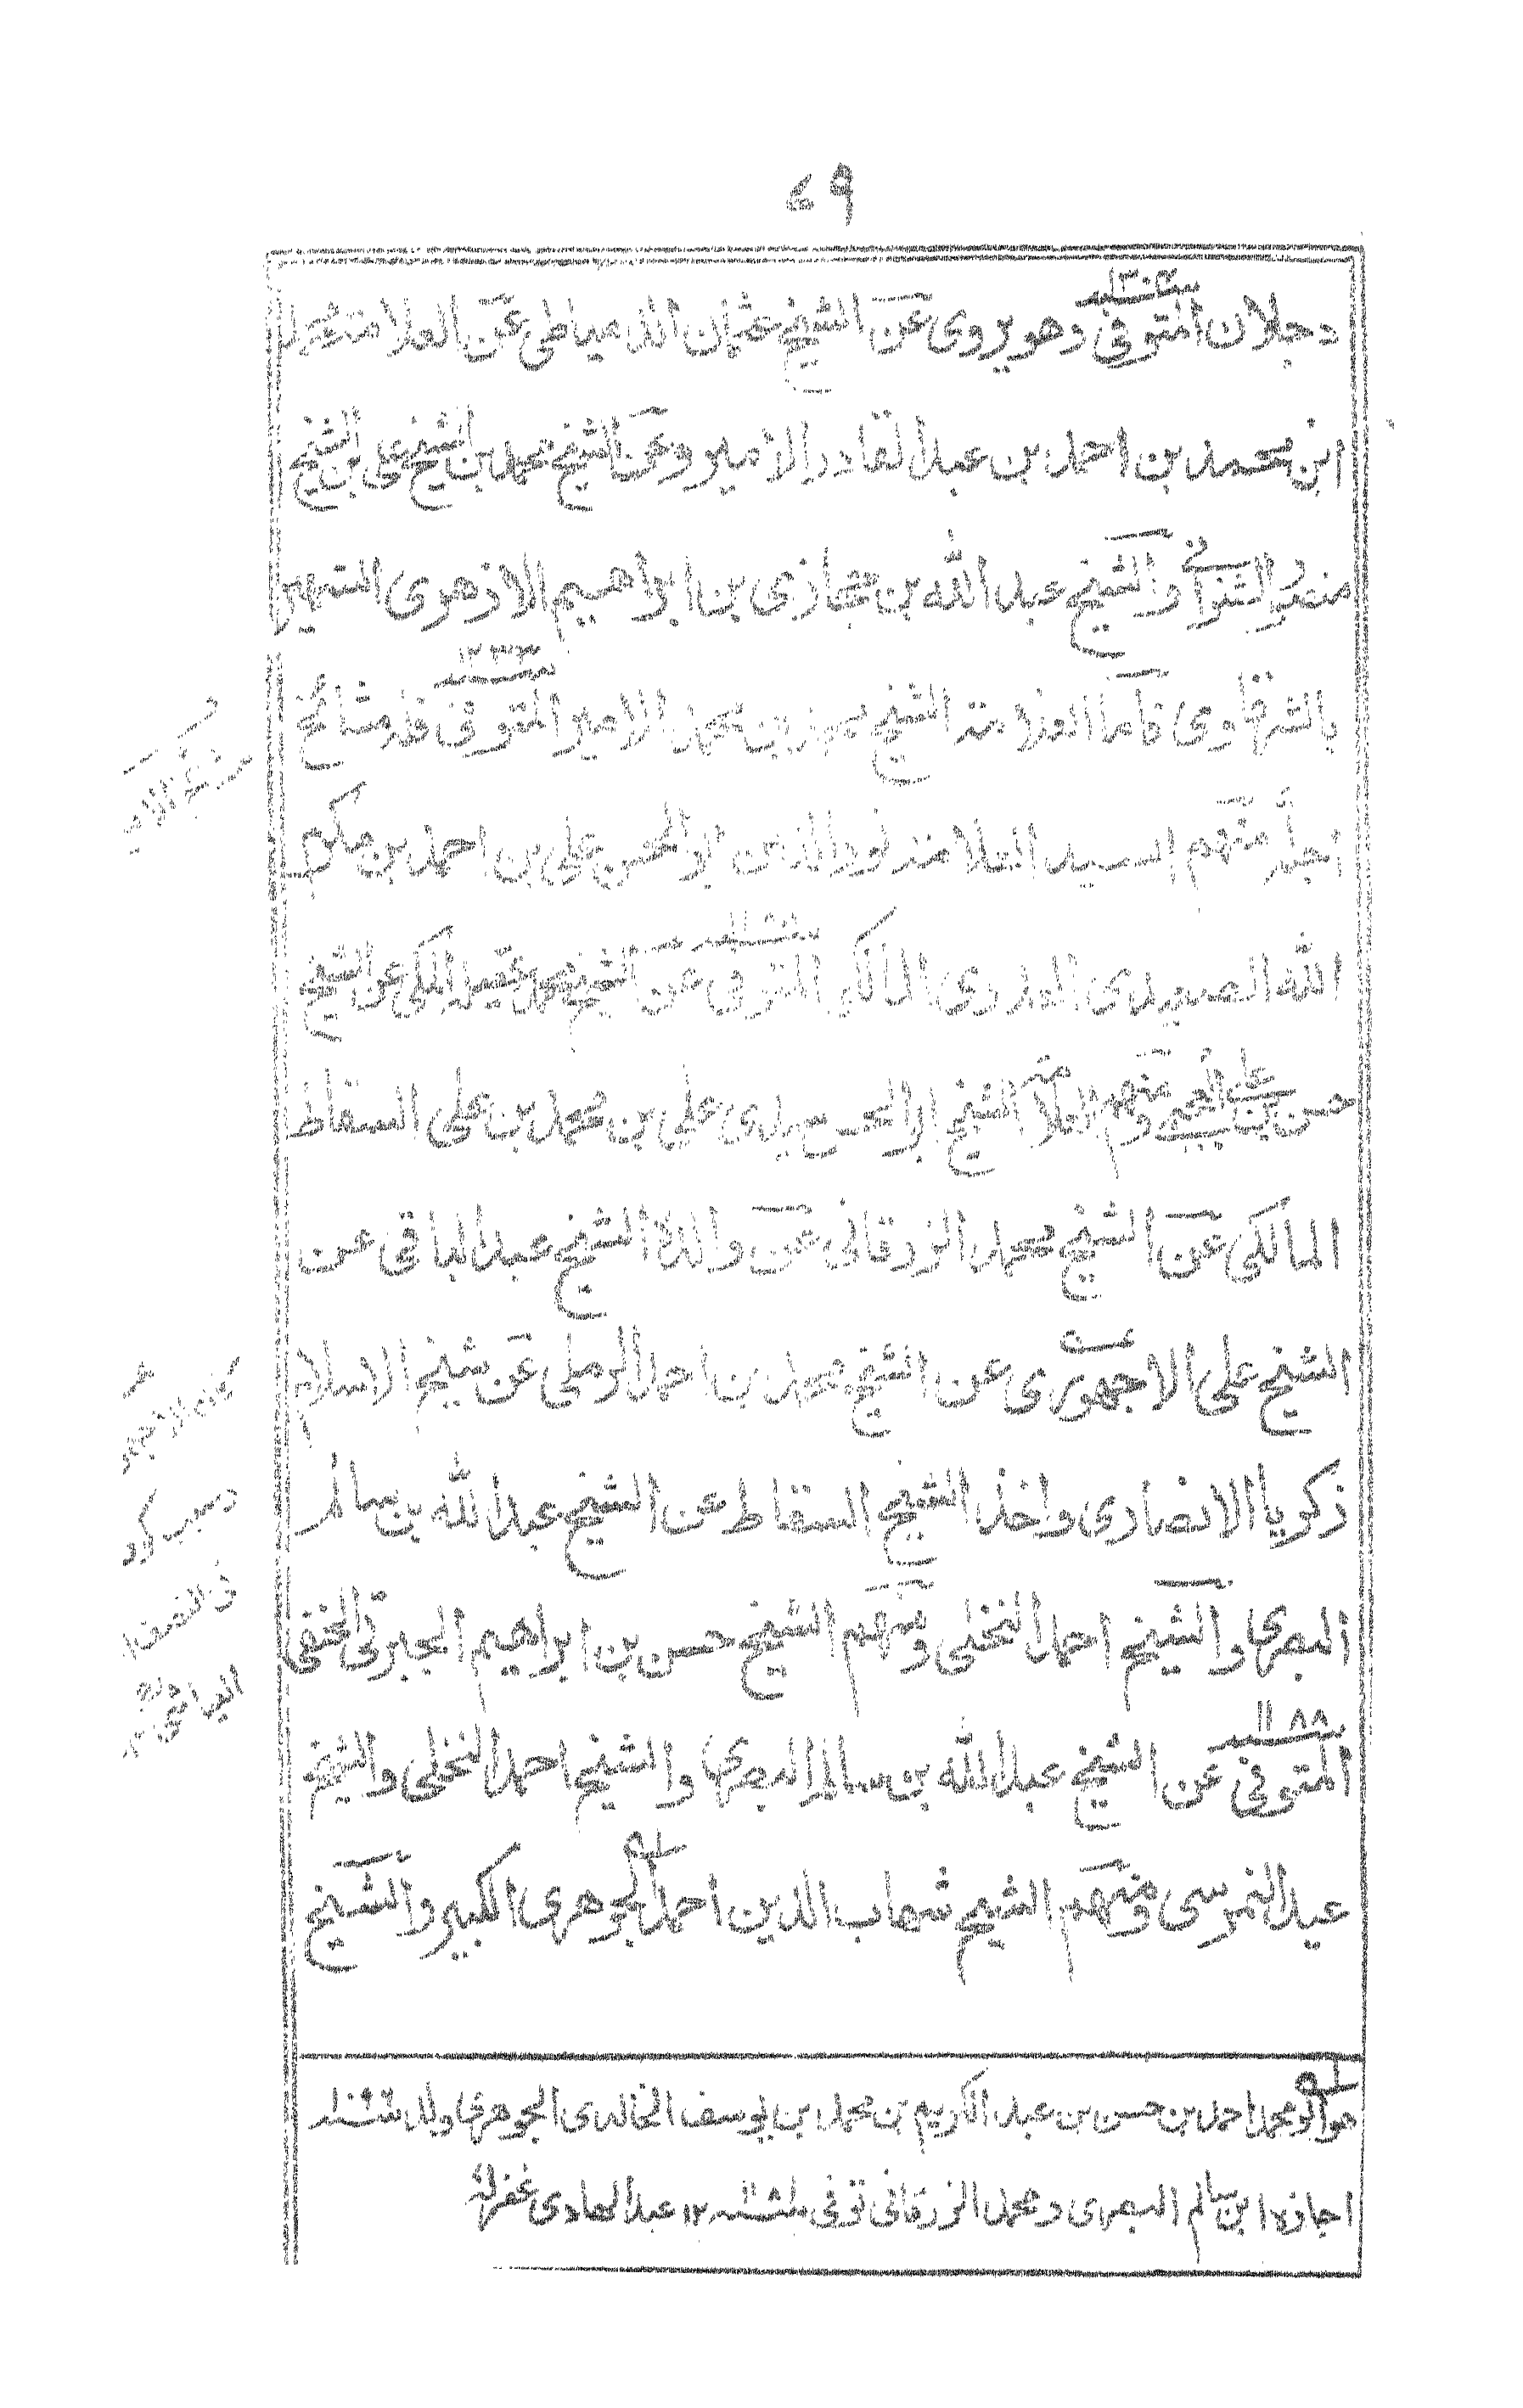 ٤٩
دحلان المتوفى سنة ١٣٠٤ وهو يروى عن الشيخ عثمان الدمياطى عن العلامة محمد
ابن محمد بن احمد بن عبد القادر الامير وعن الشيخ محمد بن الشيخ على بن الشيخ
منصور الشنوانى والشيخ عبد الله بن حجازى بن ابراهيم الازهرى الشهير
بالشرقاوى فاما العلامة الشيخ محمد بن محمد الامير المتوفى ١٢٣٢ فله مشائخ
اجلة منهم السيد العلامة نور الدين ابو الحسن على بن احمد بن مكرم
الله الصعيدى العدوى المالكى المتوفى عن الشيخ محمد عقيلة المكى عن الشيخ
حسن بن على العجيمى ومنهم العلامة الشيخ ابو الحسن سيدى على بن محمد بن على السقاط
المالكى عن الشيخ محمد الزرقانى عن والده الشيخ عبد الباقى عن
الشيخ على الاجهورى عن الشيخ محمد بن احمد الرملى عن شيخ الاسلام
زكريا الانصارى واخذ الشيخ السقاط عن الشيخ عبد الله بن سالم
البصرى والشيخ احمد النخلى ومنهم الشيخ حسن بن ابراهيم الجبرتى الحنفى
المتوفى ١١٨٨ عن الشيخ عبد الله بن سالم البصرى والشيخ احمد النخلى والشيخ
عيد النمرسى ومنهم الشيخ شهاب الدين احمد الجوهرى الكبير والشيخ
هو ابو محمد احمد بن حسن بن عبد الكريم بن محمد بن يوسف الخالدى الجوهرى ولد
اجازه ابن سالم البصرى ومحمد الزرقانى توفى ١٢ عبد الهادى غفر له